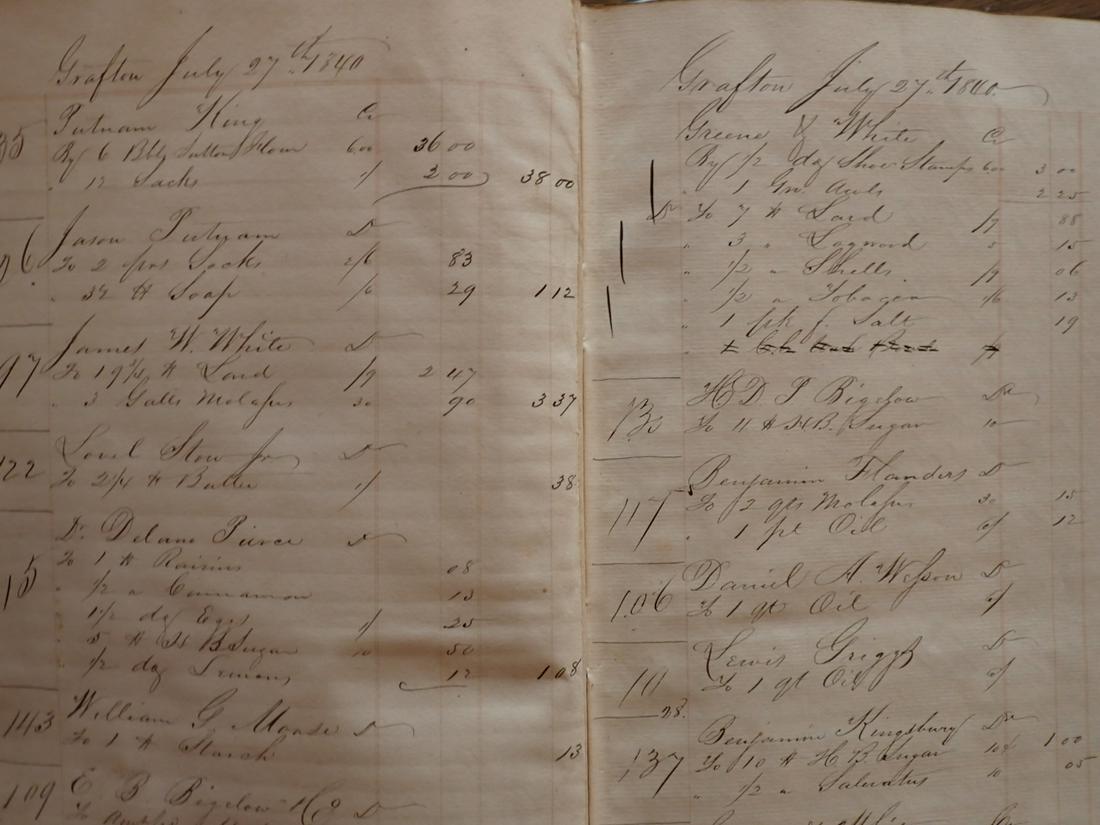 Grafton July 27th 1840
35
Putnam King Cr
By 6 Bbls Sutton Flour 600 36 00
" 12 Sacks 1/ 2 00 38 00
Jason Putnam Dr
96
To 2 prs Socks 2/6 83
" 32 # Soap 29 1 12
James W. White Dr
97
To 19 3/4 # Lard /9 2 47
" 3 Galls Molasses 30 90 3 37
Lovel Stow Jr Dr
122
To 2 1/4 # Butter 1/ 38
Dr. Delano Pierce Dr
To 1 # Raisins 08
15
" 1/2 " Cinnamon 13
1 1/2 doz Eggs 1/ 25
" 5 # H B Sugar 10 50
1/2 doz Lemons 12 1 08
William G. Dr
143
To 1 # Starch 13
109
E B Bigelow & Co Dr
To
Grafton July 27th 1840
Greene & White Cr
By 1/2 doz Shoe Stamps 600 3 00
" 1 Gro. Awls 2 25
Dr To 7 # Lard /9 88
" 3 " Logwood 15
" 1/2 " Shells /9 06
" 1/2 " 13
" 1 pk f. Salt 19
H D P Bigelow Dr
To 11 # H B. Sugar 10
Benjamin Flanders Dr
117
To 2 qts Molasses 30 15
" 1 pt Oil 12
Daniel A. Wesson Dr
106
To 1 qt Oil
Lewis Griggs Dr
101
To 1 qt Oil
28
Benjamin Kingsbury Dr
137
To 10 # H. B. Sugar 10 1 00
" 1/2 " Saleratus 10 05